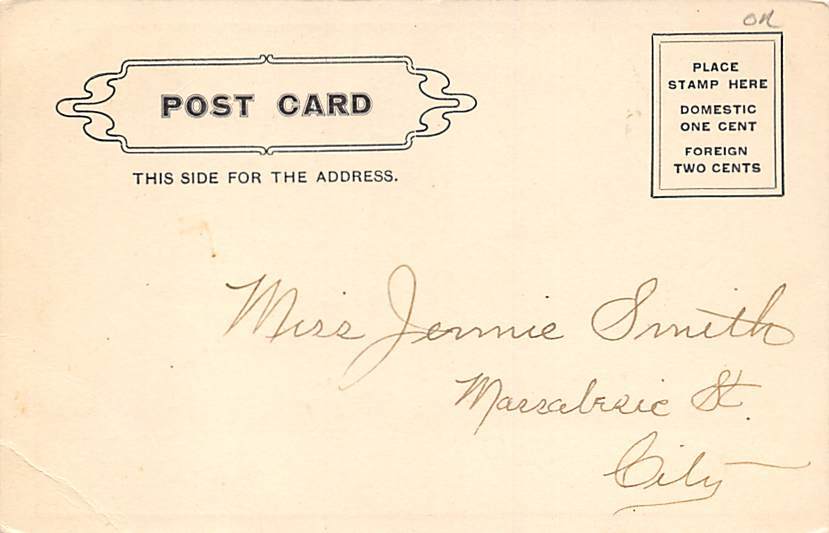 OR
POST CARD
THIS SIDE FOR THE ADDRESS.
PLACE
STAMP HERE
DOMESTIC
ONE CENT
FOREIGN
TWO CENTS
Miss Jennie Smith
St.
City